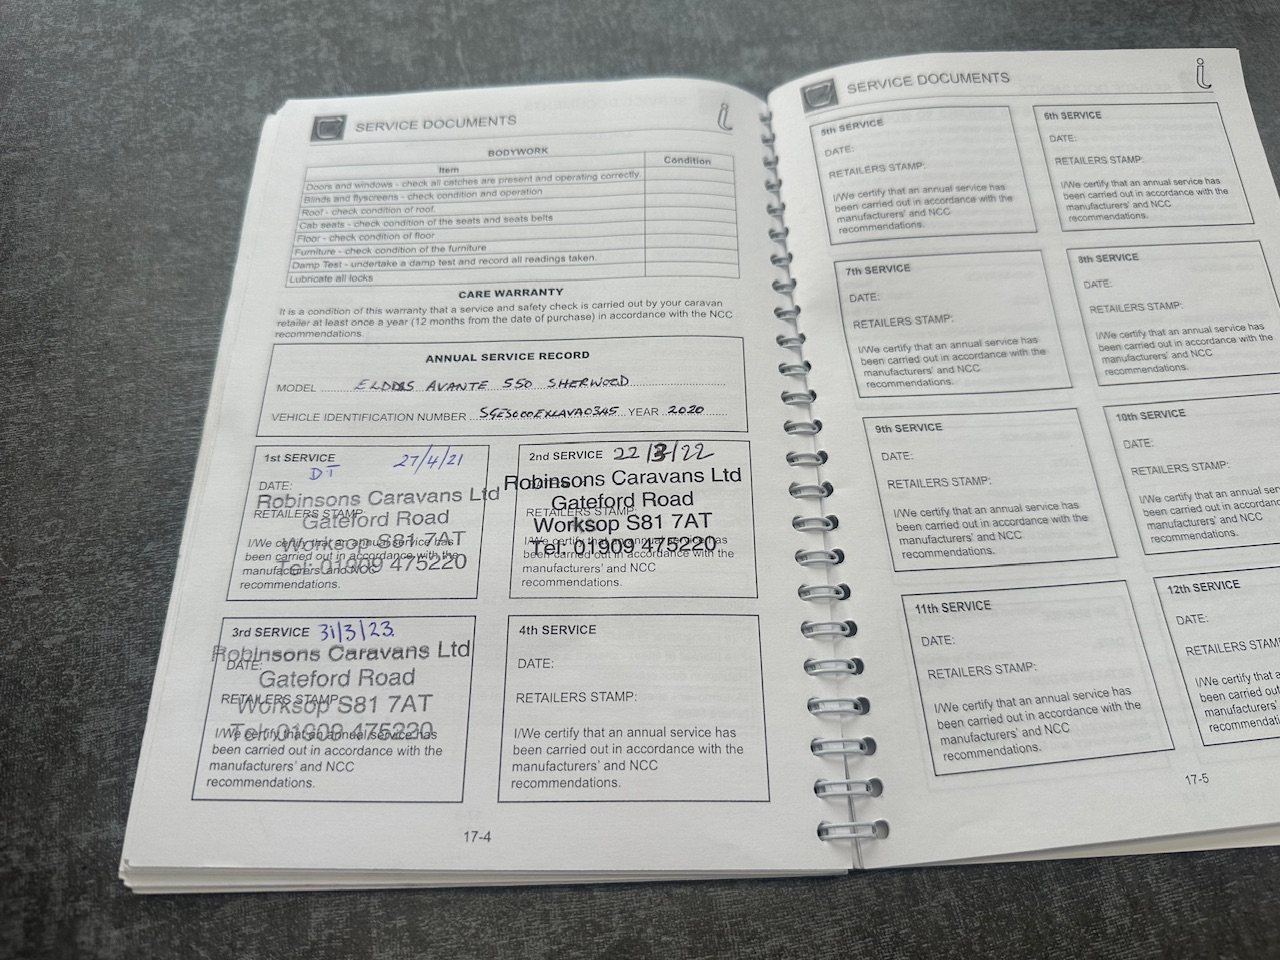 SERVICE DOCUMENTS
BODYWORK
Item Condition
Doors and windows - check all catches are present and operating correctly.
Blinds and flyscreens - check condition and operation
Roof - check condition of roof.
Cab seats - check condition of the seats and seats belts
Floor - check condition of floor
Furniture - check condition of the furniture
Damp Test - undertake a damp test and record all readings taken.
Lubricate all locks
CARE WARRANTY
It is a condition of this warranty that a service and safety check is carried out by your caravan
retailer at least once a year (12 months from the date of purchase) in accordance with the NCC
recommendations.
ANNUAL SERVICE RECORD
MODEL ELDDIS AVANTE 550 SHERWOOD
VEHICLE IDENTIFICATION NUMBER YEAR 2020
1st SERVICE 27/4/21
DT
DATE:
Robinsons Caravans Ltd
RETAILERS STAMP:
Gateford Road
I/We certify that an annual service has
Worksop S81 7AT
been carried out in accordance with the
Tel: 01909 475220
manufacturers' and NCC
recommendations.
2nd SERVICE 22/3/22
DATE:
Robinsons Caravans Ltd
Gateford Road
RETAILERS STAMP:
Worksop S81 7AT
I/We certify that an annual service has
Tel: 01909 475220
been carried out in accordance with the
manufacturers' and NCC
recommendations.
3rd SERVICE 31/3/23
Robinsons Caravans Ltd
DATE:
Gateford Road
RETAILERS STAMP:
Worksop S81 7AT
Tel: 01909 475220
I/We certify that an annual service has
been carried out in accordance with the
manufacturers' and NCC
recommendations.
4th SERVICE
DATE:
RETAILERS STAMP:
I/We certify that an annual service has
been carried out in accordance with the
manufacturers' and NCC
recommendations.
17-4
SERVICE DOCUMENTS
5th SERVICE
DATE:
RETAILERS STAMP:
I/We certify that an annual service has
been carried out in accordance with the
manufacturers' and NCC
recommendations.
6th SERVICE
DATE:
RETAILERS STAMP:
I/We certify that an annual service has
been carried out in accordance with the
manufacturers' and NCC
recommendations.
7th SERVICE
DATE:
RETAILERS STAMP:
I/We certify that an annual service has
been carried out in accordance with the
manufacturers' and NCC
recommendations.
8th SERVICE
DATE:
RETAILERS STAMP:
I/We certify that an annual service has
been carried out in accordance with the
manufacturers' and NCC
recommendations.
9th SERVICE
DATE:
RETAILERS STAMP:
I/We certify that an annual service has
been carried out in accordance with the
manufacturers' and NCC
recommendations.
10th SERVICE
DATE:
RETAILERS STAMP:
I/We certify that an annual
been carried out in accordance
manufacturers' and NCC
recommendations.
11th SERVICE
DATE:
RETAILERS STAMP:
I/We certify that an annual service has
been carried out in accordance with the
manufacturers' and NCC
recommendations.
12th SERVICE
DATE:
RETAILERS
I/We certify that a
been carried out
manufacturers'
17-5